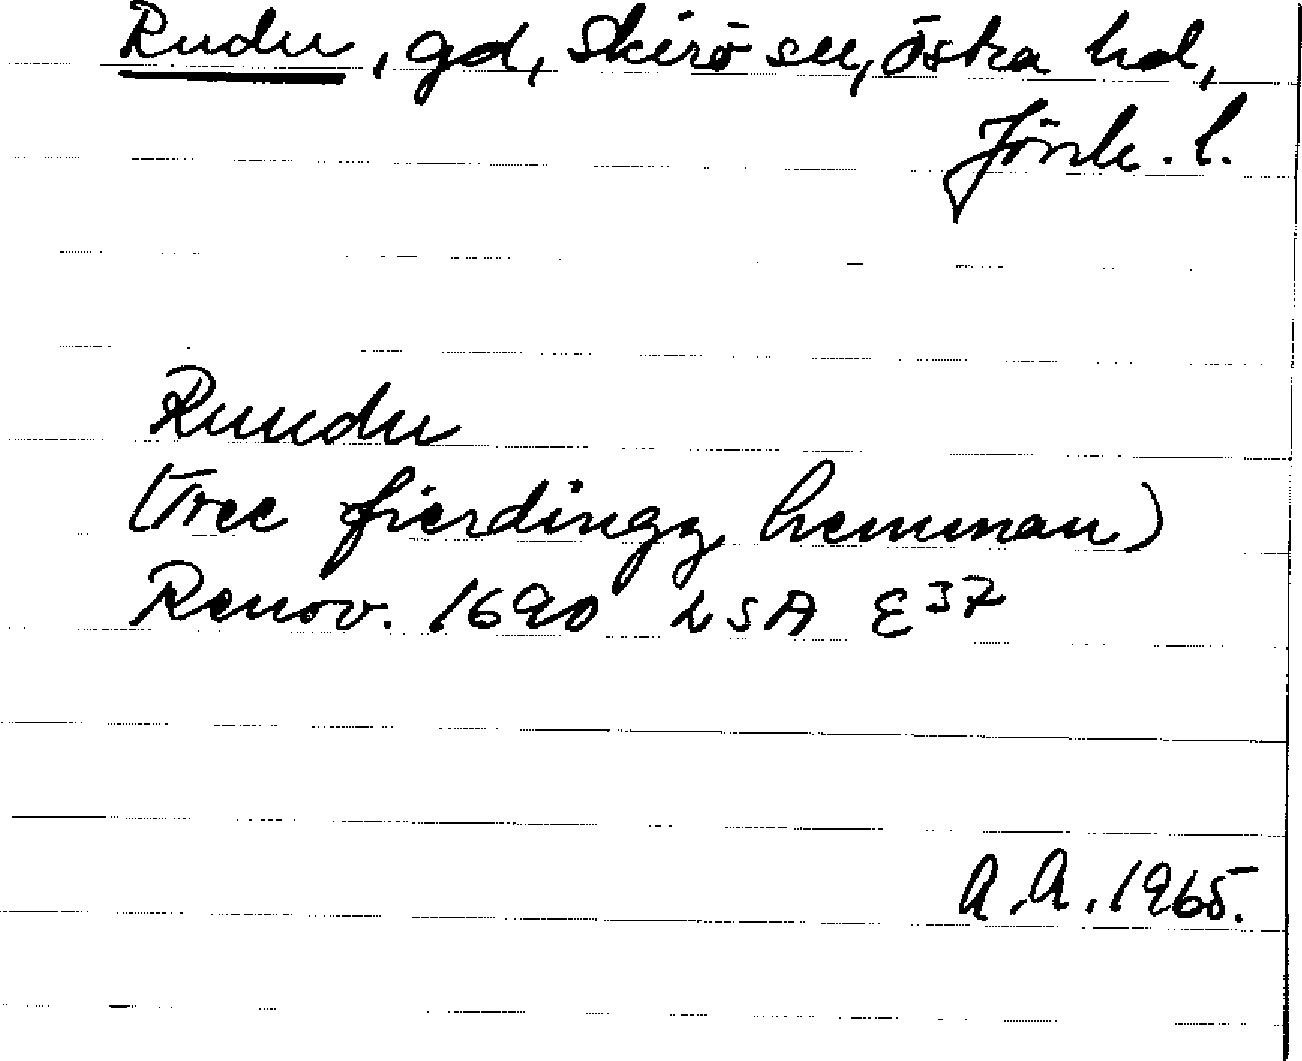 Rudu, gd, Skirö sn, Östra hd,
Jönk. l.
Ruudu
(tree fierdingz hemman)
Renov. 1690 LSA E37
A.A. 1965.